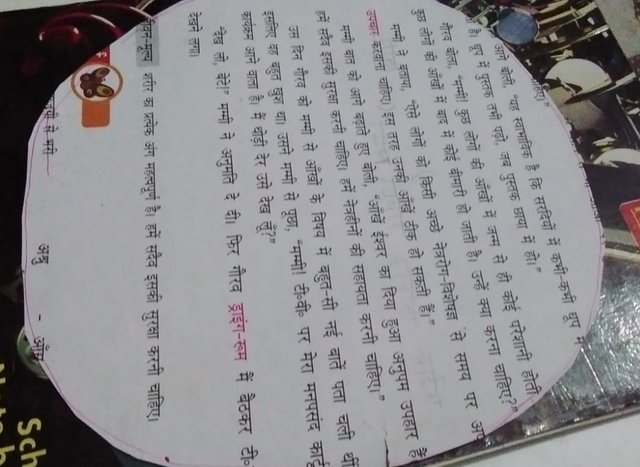 आगे बोलीं, "यह स्वाभाविक है कि सरदियों में कभी-कभी धूप में
है। धूप में पुस्तक तभी पढ़ो, जब पुस्तक छाया में हो।"
गौरव बोला, "मम्मी! कुछ लोगों की आँखों में जन्म से ही कोई परेशानी होती
कुछ लोगों की आँखों में बाद में कोई बीमारी हो जाती है। उन्हें क्या करना चाहिए?"
मम्मी ने बताया, "ऐसे लोगों को किसी अच्छे नेत्ररोग-विशेषज्ञ से समय पर अप
उपचार करवाना चाहिए। इस तरह उनकी आँखें ठीक हो सकती हैं।"
मम्मी बात को आगे बढ़ाते हुए बोलीं, "आँखें ईश्वर का दिया हुआ अनुपम उपहार हैं
हमें सदैव इसकी सुरक्षा करनी चाहिए। हमें नेत्रहीनों की सहायता करनी चाहिए।"
उस दिन गौरव को मम्मी से आँखों के विषय में बहुत-सी नई बातें पता चली थीं
इसलिए वह बहुत खुश था। उसने मम्मी से पूछा, "मम्मी! टी०वी० पर मेरा मनपसंद कार्टू
कार्यक्रम आने वाला है। मैं थोड़ी देर उसे देख लूँ?"
"देख लो बेटे!" मम्मी ने अनुमति दे दी। फिर गौरव ड्राइंग-रूम में बैठकर टी०
देखने लगा।
जीवन-मूल्य शरीर का प्रत्येक अंग महत्वपूर्ण है। हमें सदैव इसकी सुरक्षा करनी चाहिए।
अश्रु - आँसू
Sch